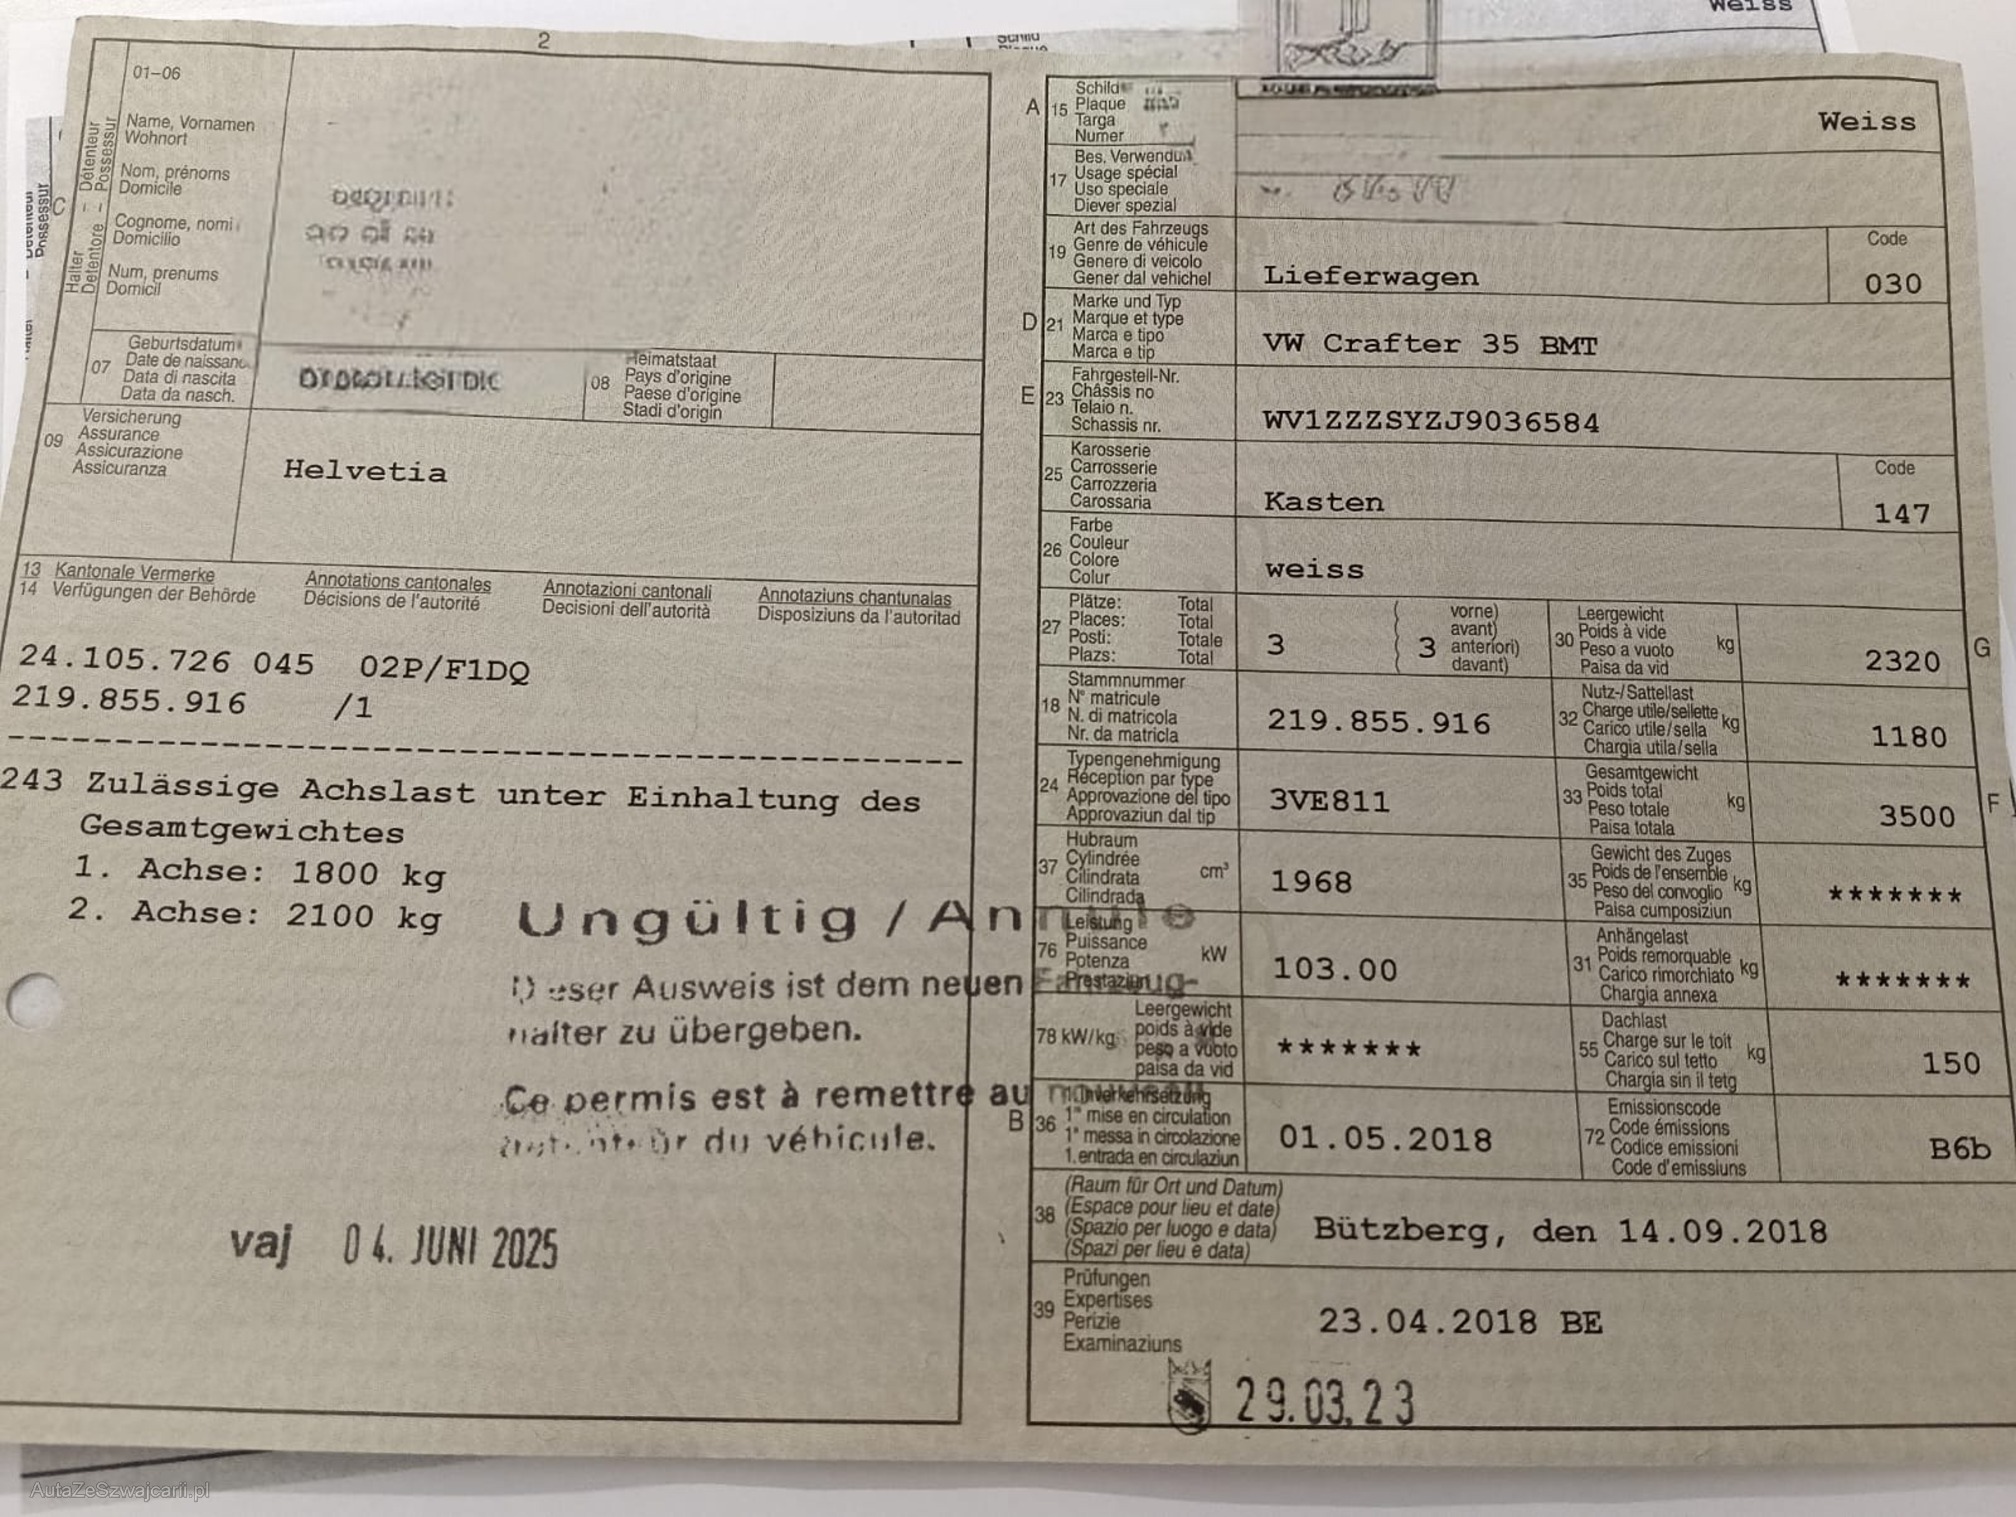 Weiss
2
01–06
Halter – Détenteur
Detentore – Possessur
C
Name, Vornamen
Wohnort
Nom, prénoms
Domicile
Cognome, nomi
Domicilio
Num, prenums
Domicil
07
Geburtsdatum
Date de naissanc
Data di nascita
Data da nasch.
08
Heimatstaat
Pays d'origine
Paese d'origine
Stadi d'origin
09
Versicherung
Assurance
Assicurazione
Assicuranza
Helvetia
13 Kantonale Vermerke Annotations cantonales Annotazioni cantonali Annotaziuns chantunalas
14 Verfügungen der Behörde Décisions de l'autorité Decisioni dell'autorità Disposiziuns da l'autoritad
24.105.726 045 02P/F1DQ
219.855.916 /1
243 Zulässige Achslast unter Einhaltung des
Gesamtgewichtes
1. Achse: 1800 kg
2. Achse: 2100 kg
Ungültig /
Dieser Ausweis ist dem neuen
halter zu übergeben.
Ce permis est à remettre au
du véhicule.
vaj 04. JUNI 2025
A 15
Schild
Plaque
Targa
Numer
Weiss
17
Bes. Verwendun
Usage spécial
Uso speciale
Diever spezial
19
Art des Fahrzeugs
Genre de véhicule
Genere di veicolo
Gener dal vehichel
Lieferwagen
Code
030
D 21
Marke und Typ
Marque et type
Marca e tipo
Marca e tip
VW Crafter 35 BMT
E 23
Fahrgestell-Nr.
Châssis no
Telaio n.
Schassis nr.
WV1ZZZSYZJ9036584
25
Karosserie
Carrosserie
Carrozzeria
Carossaria
Kasten
Code
147
26
Farbe
Couleur
Colore
Colur
weiss
27
Plätze: Total
Places: Total
Posti: Totale
Plazs: Total
3
3
vorne)
avant)
anteriori)
davant)
30
Leergewicht
Poids à vide
Peso a vuoto
Paisa da vid
kg
2320
G
18
Stammnummer
N° matricule
N. di matricola
Nr. da matricla
219.855.916
32
Nutz-/Sattellast
Charge utile/sellette
Carico utile/sella
Chargia utila/sella
kg
1180
24
Typengenehmigung
Réception par type
Approvazione del tipo
Approvaziun dal tip
3VE811
33
Gesamtgewicht
Poids total
Peso totale
Paisa totala
kg
3500
F
37
Hubraum
Cylindrée
Cilindrata
Cilindrada
cm³
1968
35
Gewicht des Zuges
Poids de l'ensemble
Peso del convoglio
Paisa cumposiziun
kg
*******
76
Leistung
Puissance
Potenza
Prestaziun
kW
103.00
31
Anhängelast
Poids remorquable
Carico rimorchiato
Chargia annexa
kg
*******
78 kW/kg
Leergewicht
poids à vide
peso a vuoto
paisa da vid
*******
55
Dachlast
Charge sur le toit
Carico sul tetto
Chargia sin il tetg
kg
150
B 36
1ʳᵉ mise en circulation
1ª messa in circolazione
1. entrada en circulaziun
01.05.2018
72
Emissionscode
Code émissions
Codice emissioni
Code d'emissiuns
B6b
38
(Raum für Ort und Datum)
(Espace pour lieu et date)
(Spazio per luogo e data)
(Spazi per lieu e data)
Bützberg, den 14.09.2018
39
Prüfungen
Expertises
Perizie
Examinaziuns
23.04.2018 BE
29.03.23
AutaZeSzwajcarii.pl